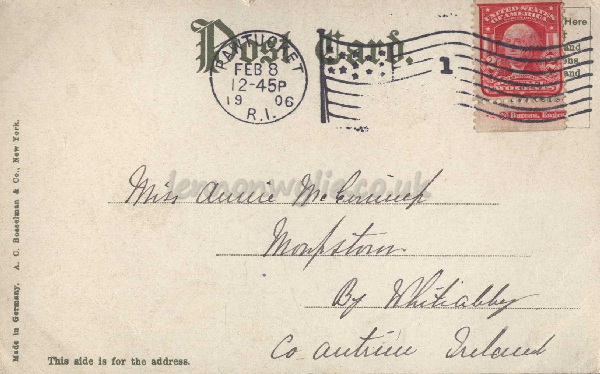 Post Card.
Here
and
and
PAWTUCKET
FEB 8
12-45P
19 06
R.I.
1
UNITED STATES
OF AMERICA
Bureau, Engr
lennonwylie.co.uk
Miss Annie
By Whiteabbey
Co Antrim Ireland
This side is for the address.
Made in Germany. A. C. Bosselman & Co., New York.